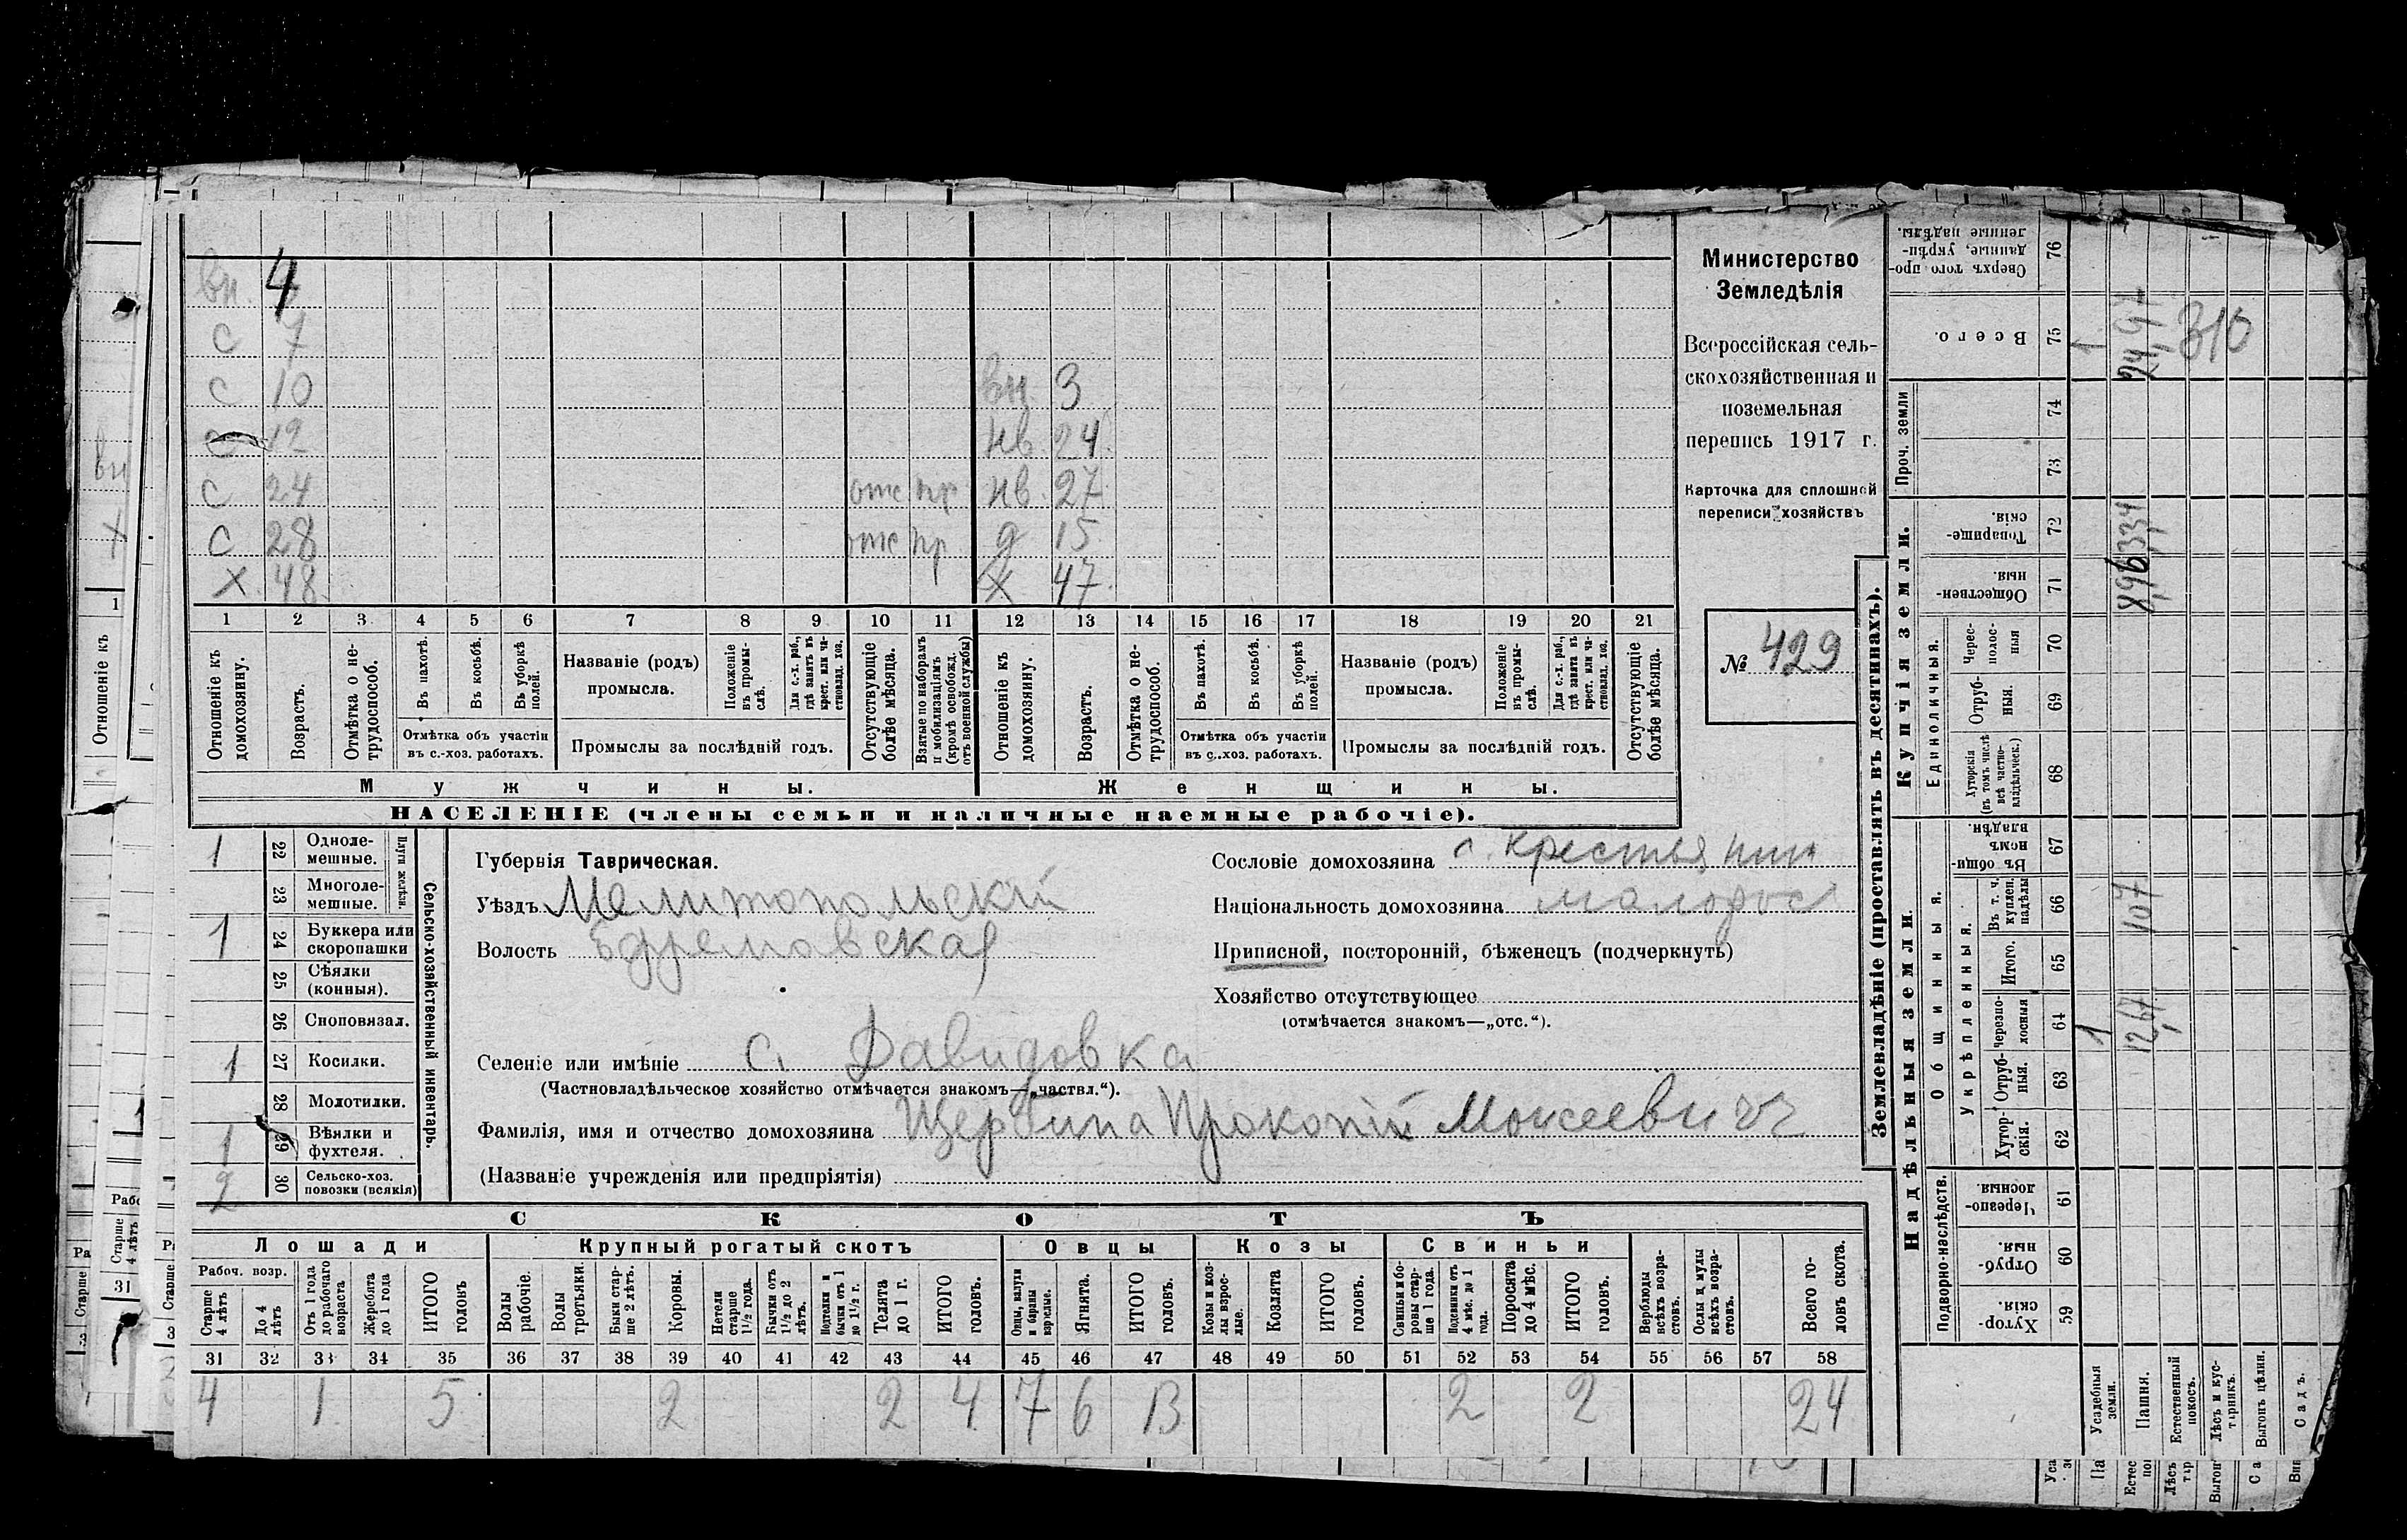 вн. 4
с 7
с 10 вн. 3
с 12 нв. 24
с 24 отс пр нв. 27
с 28 отс пр д 15
х 48 х 47
1 2 3 4 5 6 7 8 9 10 11 12 13 14 15 16 17 18 19 20 21
Отношеніе къ домохозяину.
Возрастъ.
Отмѣтка о нетрудоспособ.
Въ пахотѣ.
Въ косьбѣ.
Въ уборкѣ полей.
Отмѣтка объ участіи въ с.-хоз. работахъ.
Названіе (родъ) промысла.
Положеніе въ промыслѣ.
Для с.-х. раб., гдѣ занятъ въ крест. или частновлад. хоз.
Промыслы за послѣдній годъ.
Отсутствующіе болѣе мѣсяца.
Взятые по наборамъ и мобилизаціямъ (кромѣ освобожд. отъ военной службы)
Отношеніе къ домохозяину.
Возрастъ.
Отмѣтка о нетрудоспособ.
Въ пахотѣ.
Въ косьбѣ.
Въ уборкѣ полей.
Отмѣтка объ участіи въ с.-хоз. работахъ.
Названіе (родъ) промысла.
Положеніе въ промыслѣ.
Для с.-х. раб., гдѣ занята въ крест. или частновлад. хоз.
Промыслы за послѣдній годъ.
Отсутствующіе болѣе мѣсяца.
Мужчины. Женщины.
НАСЕЛЕНІЕ (члены семьи и наличные наемные рабочіе).
Министерство
Земледѣлія
Всероссійская сель-
скохозяйственная и
поземельная
перепись 1917 г.
Карточка для сплошной
переписи хозяйствъ
№ 429
1 22 Одноле-мешные.
23 Многоле-мешные.
Плуги желѣзн.
1 24 Буккера или скоропашки
25 Сѣялки (конныя).
26 Сноповязал.
1 27 Косилки.
28 Молотилки.
1 29 Вѣялки и фухтеля.
2 30 Сельско-хоз. повозки (всякія)
Сельско-хозяйственный инвентарь.
Губернія Таврическая.
Уѣздъ Мелитопольскій
Волость Ефремовская
Селеніе или имѣніе с. Давидовка
(Частновладѣльческое хозяйство отмѣчается знакомъ—„частвл.“).
Фамилія, имя и отчество домохозяина Щербина Прокопій Моисеевичъ
(Названіе учрежденія или предпріятія)
Сословіе домохозяина с. крестьянин
Національность домохозяина малорос
Приписной, посторонній, бѣженецъ (подчеркнуть)
Хозяйство отсутствующее
(отмѣчается знакомъ—„отс.“).
СКОТЪ
Лошади Крупный рогатый скотъ Овцы Козы Свиньи
Рабоч. возр.
Старше 4 лѣтъ
До 4 лѣтъ
Отъ 1 года до рабочаго возраста
Жеребята до 1 года
ИТОГО головъ
Волы рабочіе.
Волы третьяки.
Быки старше 2 лѣтъ.
Коровы.
Нетели старше 1½ года.
Бычки отъ 1½ до 2 лѣтъ.
Подтелки и бычки отъ 1 до 1½ г.
Телята до 1 г.
ИТОГО головъ.
Овцы, валухи и бараны взрослые.
Ягнята.
ИТОГО головъ.
Козы и козлы взрослые.
Козлята
ИТОГО головъ.
Свиньи и боровы старше 1 года.
Подсвинки отъ 4 мѣс. до 1 года.
Поросята до 4 мѣс.
ИТОГО головъ.
Верблюды всѣхъ возрастовъ.
Ослы и мулы всѣхъ возрастовъ.
Всего головъ скота.
31 32 33 34 35 36 37 38 39 40 41 42 43 44 45 46 47 48 49 50 51 52 53 54 55 56 57 58
4 1 5 2 2 4 7 6 13 2 2 24
Землевладѣніе (проставлять въ десятинахъ).
Надѣльныя земли. Купчія земли. Проч. земли
Подворно-наслѣдств.
Общинныя.
Укрѣпленныя.
Единоличныя.
Хутор-скія. 59
Отруб-ныя. 60
Черезпо-лосныя. 61
Хутор-скія. 62
Отруб-ныя. 63
Черезпо-лосныя 64
Итого. 65
Въ т. ч. куплен. надѣлы 66
Въ общин-номъ владѣн. 67
Хуторскія (въ томъ числѣ всѣ частно-владѣльческ.) 68
Отруб-ныя. 69
Черес-полос-ныя 70
Обществен-ныя. 71
Товарище-скія. 72
73
74
Всего. 75
Сверхъ того про-данные, укрѣп-ленные надѣлы. 76
Усадебныя земли. 1 1
Пашня. 12,67 107 8,96 3,34 24,97
Естественный покосъ. 310
Лѣсъ и кус-тарникъ.
Выгонъ цѣлин.
Садъ.